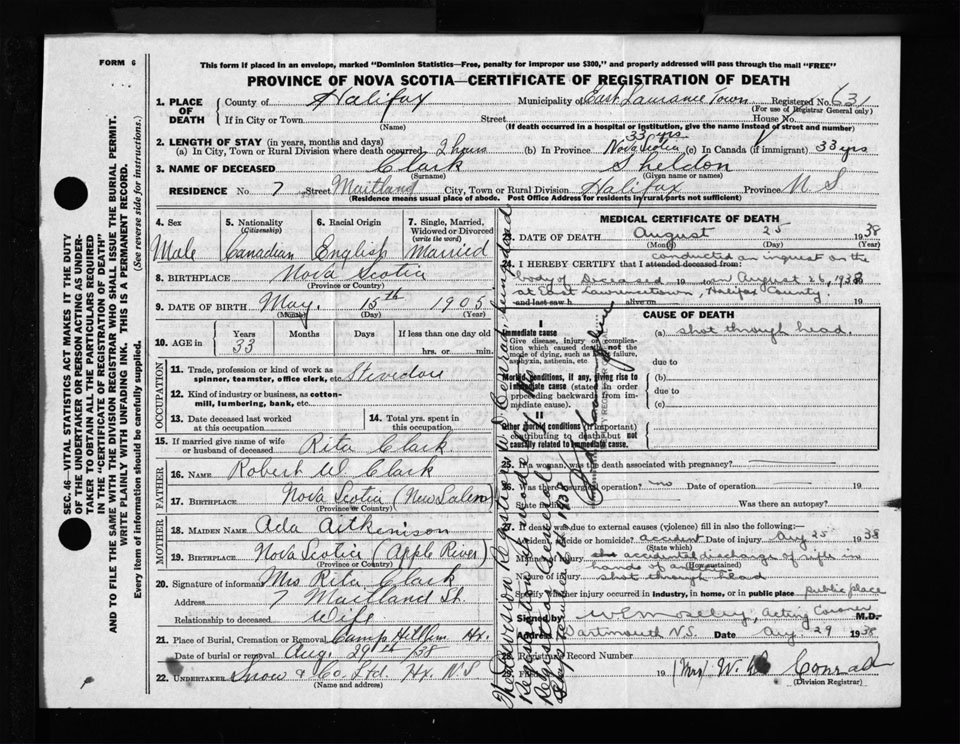 FORM 6
This form if placed in an envelope, marked "Dominion Statistics—Free, penalty for improper use $300," and properly addressed will pass through the mail "FREE"
PROVINCE OF NOVA SCOTIA—CERTIFICATE OF REGISTRATION OF DEATH
1. PLACE OF DEATH County of Halifax Municipality of East Laurance Town Registered No. 631
(For use of Registrar General only)
If in City or Town Street House No.
(Name) (If death occurred in a hospital or institution, give the name instead of street and number
2. LENGTH OF STAY (in years, months and days)
(a) In City, Town or Rural Division where death occurred 2 hours (b) In Province 33 yrs Nova Scotia (c) In Canada (if immigrant) 33 yrs
3. NAME OF DECEASED Clark Sheldon
(Surname) (Given name or names)
RESIDENCE No. 7 Street Maitland City, Town or Rural Division Halifax Province N S
(Residence means usual place of abode. Post Office Address for residents in rural parts not sufficient)
4. Sex Male
5. Nationality (Citizenship) Canadian
6. Racial Origin English
7. Single, Married, Widowed or Divorced (write the word) Married
8. BIRTHPLACE Nova Scotia
(Province or Country)
9. DATE OF BIRTH May 15th 1905
(Month) (Day) (Year)
10. AGE in Years 33 Months Days If less than one day old
hrs. or min.
OCCUPATION
11. Trade, profession or kind of work as spinner, teamster, office clerk, etc. Stevedore
12. Kind of industry or business, as cotton-mill, lumbering, bank, etc.
13. Date deceased last worked at this occupation
14. Total yrs. spent in this occupation
15. If married give name of wife or husband of deceased Rita Clark
FATHER
16. NAME Robert W. Clark
17. BIRTHPLACE Nova Scotia (New Salem)
(Province or Country)
MOTHER
18. MAIDEN NAME Ada Aitkenison
19. BIRTHPLACE Nova Scotia (Apple River)
(Province or Country)
20. Signature of informant Mrs Rita Clark
Address 7 Maitland St.
Relationship to deceased Wife
21. Place of Burial, Cremation or Removal Camp Hill Hx.
Date of burial or removal Aug. 29th /38
22. UNDERTAKER Snow & Co Ltd. Hx. N S
(Name and address)
MEDICAL CERTIFICATE OF DEATH
DATE OF DEATH August 25 1938
(Month) (Day) (Year)
24. I HEREBY CERTIFY that I attended deceased from: conducted an inquest on the
body of Deceased 19 to on August 26, 1938
at East Lawrencetown, Halifax County.
and last saw h alive on 19
CAUSE OF DEATH
I
Immediate cause
Give disease, injury or complication which caused death, not the mode of dying, such as heart failure, asphyxia, asthenia, etc.
(a) shot through head.
due to
Morbid conditions, if any, giving rise to immediate cause (stated in order proceeding backwards from immediate cause).
(b)
due to
(c)
II
Other morbid conditions (if important) contributing to death but not causally related to immediate cause.
25. If a woman, was the death associated with pregnancy?
26. Was there a surgical operation? no Date of operation 19
State findings Was there an autopsy?
27. If death was due to external causes (violence) fill in also the following:—
Accident, suicide or homicide? accident Date of injury Aug 25 1938
(State which)
Manner of injury accidental discharge of rifle in
hands of another
(How sustained)
Nature of injury shot through head
Specify whether injury occurred in industry, in home, or in public place public place
Signed by Acting Coroner M.D.
Address Dartmouth N.S. Date Aug. 29 1938
28. Registrar's Record Number
Filed 19 (Mrs) W. Conrad
(Division Registrar)
SEC. 46—VITAL STATISTICS ACT MAKES IT THE DUTY
OF THE UNDERTAKER OR PERSON ACTING AS UNDERTAKER TO OBTAIN ALL THE PARTICULARS REQUIRED
IN THE "CERTIFICATE OF REGISTRATION OF DEATH"
AND TO FILE THE SAME WITH THE DIVISION REGISTRAR WHO SHALL ISSUE THE BURIAL PERMIT.
WRITE PLAINLY WITH UNFADING INK. THIS IS A PERMANENT RECORD.
Every item of information should be carefully supplied. (See reverse side for instructions.)